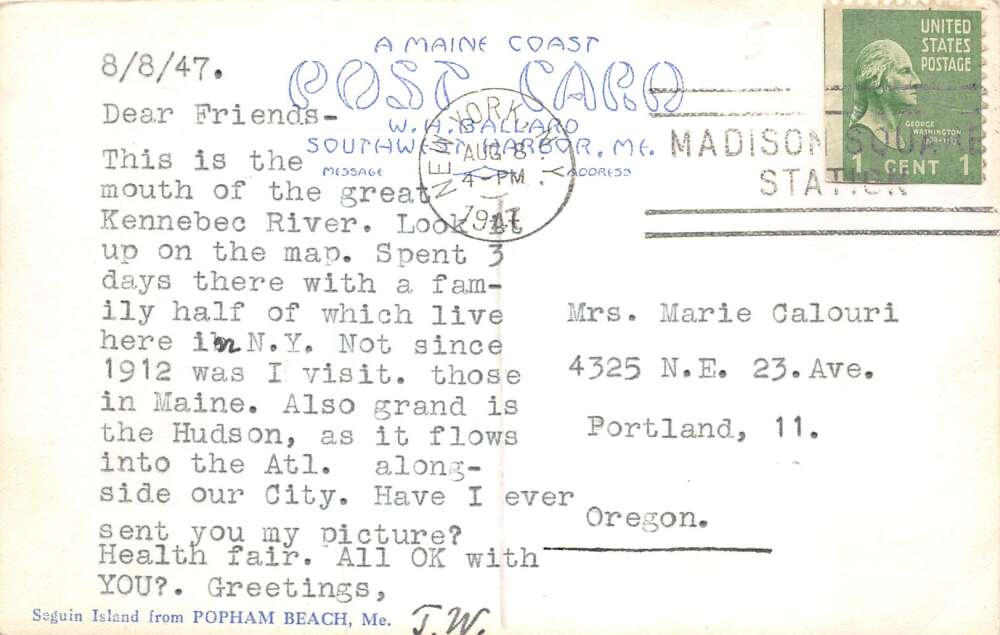 A MAINE COAST
POST CARD
W. H. BALLARD
SOUTHWEST HARBOR, ME.
MESSAGE
ADDRESS
NEW YORK, N.Y.
AUG 8
4-PM
1947
MADISON SQUARE
STATION
UNITED
STATES
POSTAGE
GEORGE
WASHINGTON
1 CENT 1
8/8/47.
Dear Friends-
This is the
mouth of the great
Kennebec River. Look it
up on the map. Spent 3
days there with a fam-
ily half of which live
here in N.Y. Not since
1912 was I visit. those
in Maine. Also grand is
the Hudson, as it flows
into the Atl. along-
side our City. Have I ever
sent you my picture?
Health fair. All OK with
YOU?. Greetings,
J.W.
Mrs. Marie Calouri
4325 N.E. 23.Ave.
Portland, 11.
Oregon.
Seguin Island from POPHAM BEACH, Me.